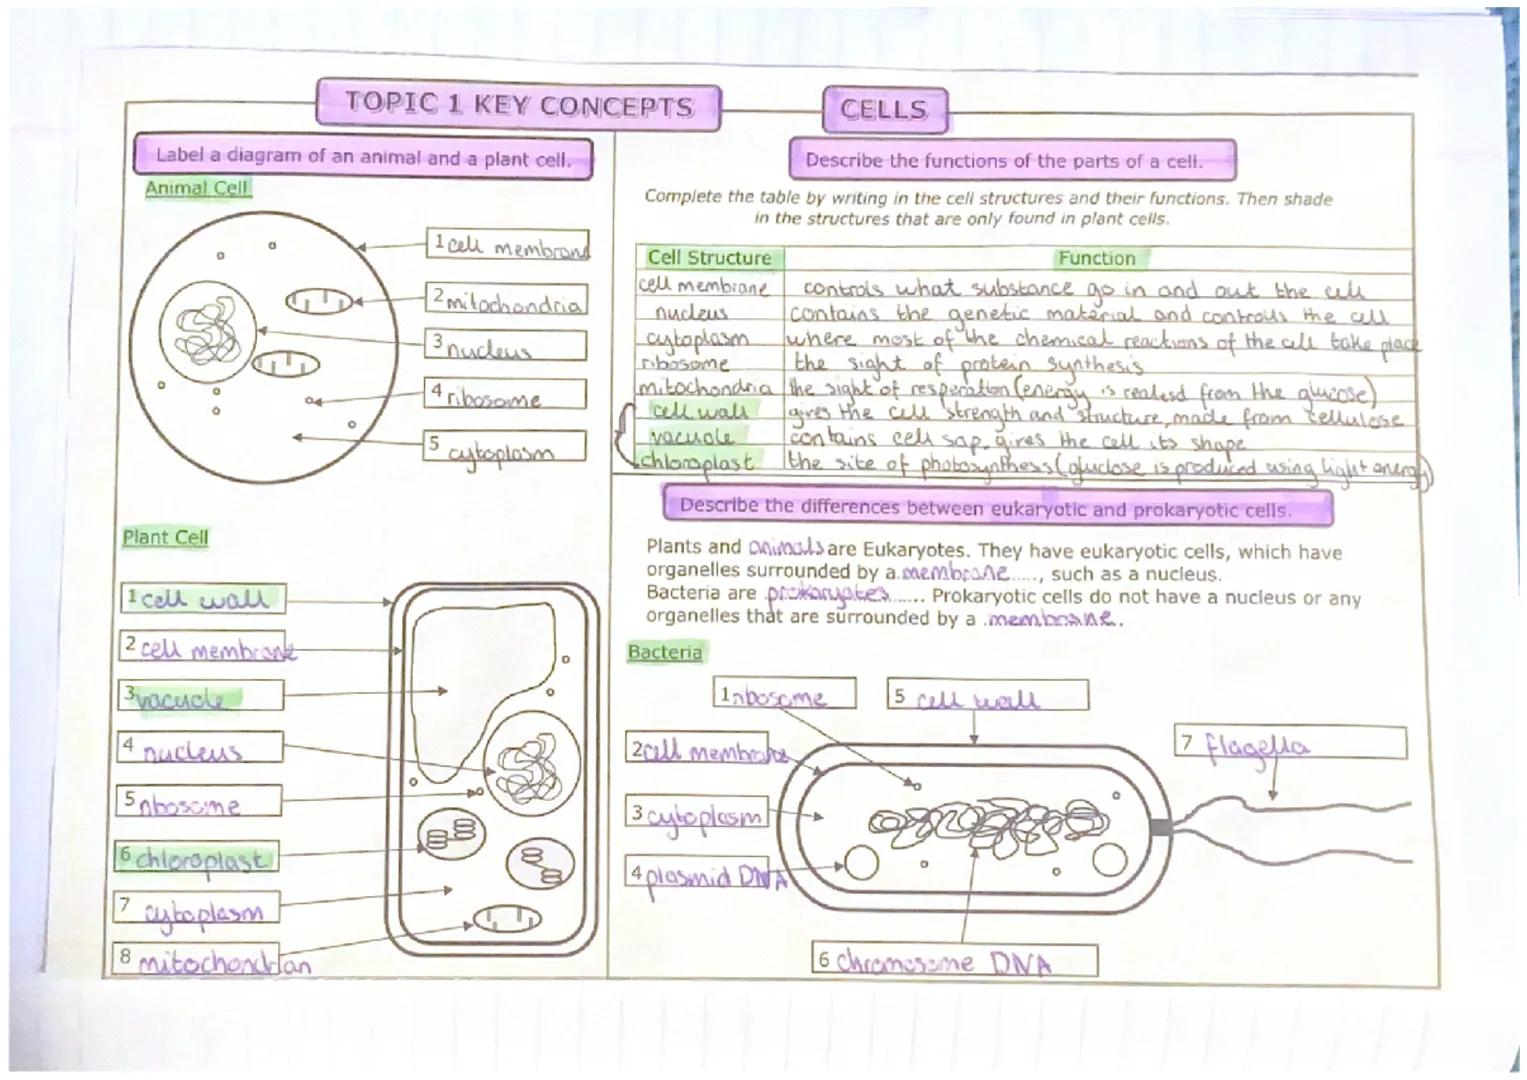 TOPIC 1 KEY CONCEPTS
CELLS
Label a diagram of an animal and a plant cell.
Animal Cell
1 cell membrane
2 mitochondria
3 nucleus
4 ribosome
5 cytoplasm
Plant Cell
1 cell wall
2 cell membrane
3 vacuole
4 nucleus
5 ribosome
6 chloroplast
7 cytoplasm
8 mitochondrian
Describe the functions of the parts of a cell.
Complete the table by writing in the cell structures and their functions. Then shade
in the structures that are only found in plant cells.
Cell Structure Function
cell membrane controls what substance go in and out the cell
nucleus contains the genetic material and controls the cell
cytoplasm where most of the chemical reactions of the cell take place
ribosome the sight of protein synthesis
mitochondria the sight of resperation (energy is realesd from the glucose)
cell wall gives the cell strength and structure, made from cellulose
vacuole contains cell sap. gives the cell its shape
chloroplast the site of photosynthess (gluclose is produced using light energy)
Describe the differences between eukaryotic and prokaryotic cells.
Plants and animals are Eukaryotes. They have eukaryotic cells, which have
organelles surrounded by a membrane....., such as a nucleus.
Bacteria are prokaryotes...... Prokaryotic cells do not have a nucleus or any
organelles that are surrounded by a .membrane.
Bacteria
1 ribosome
5 cell wall
2 cell membrane
7 flagella
3 cytoplasm
4 plasmid DNA
6 chromosome DNA